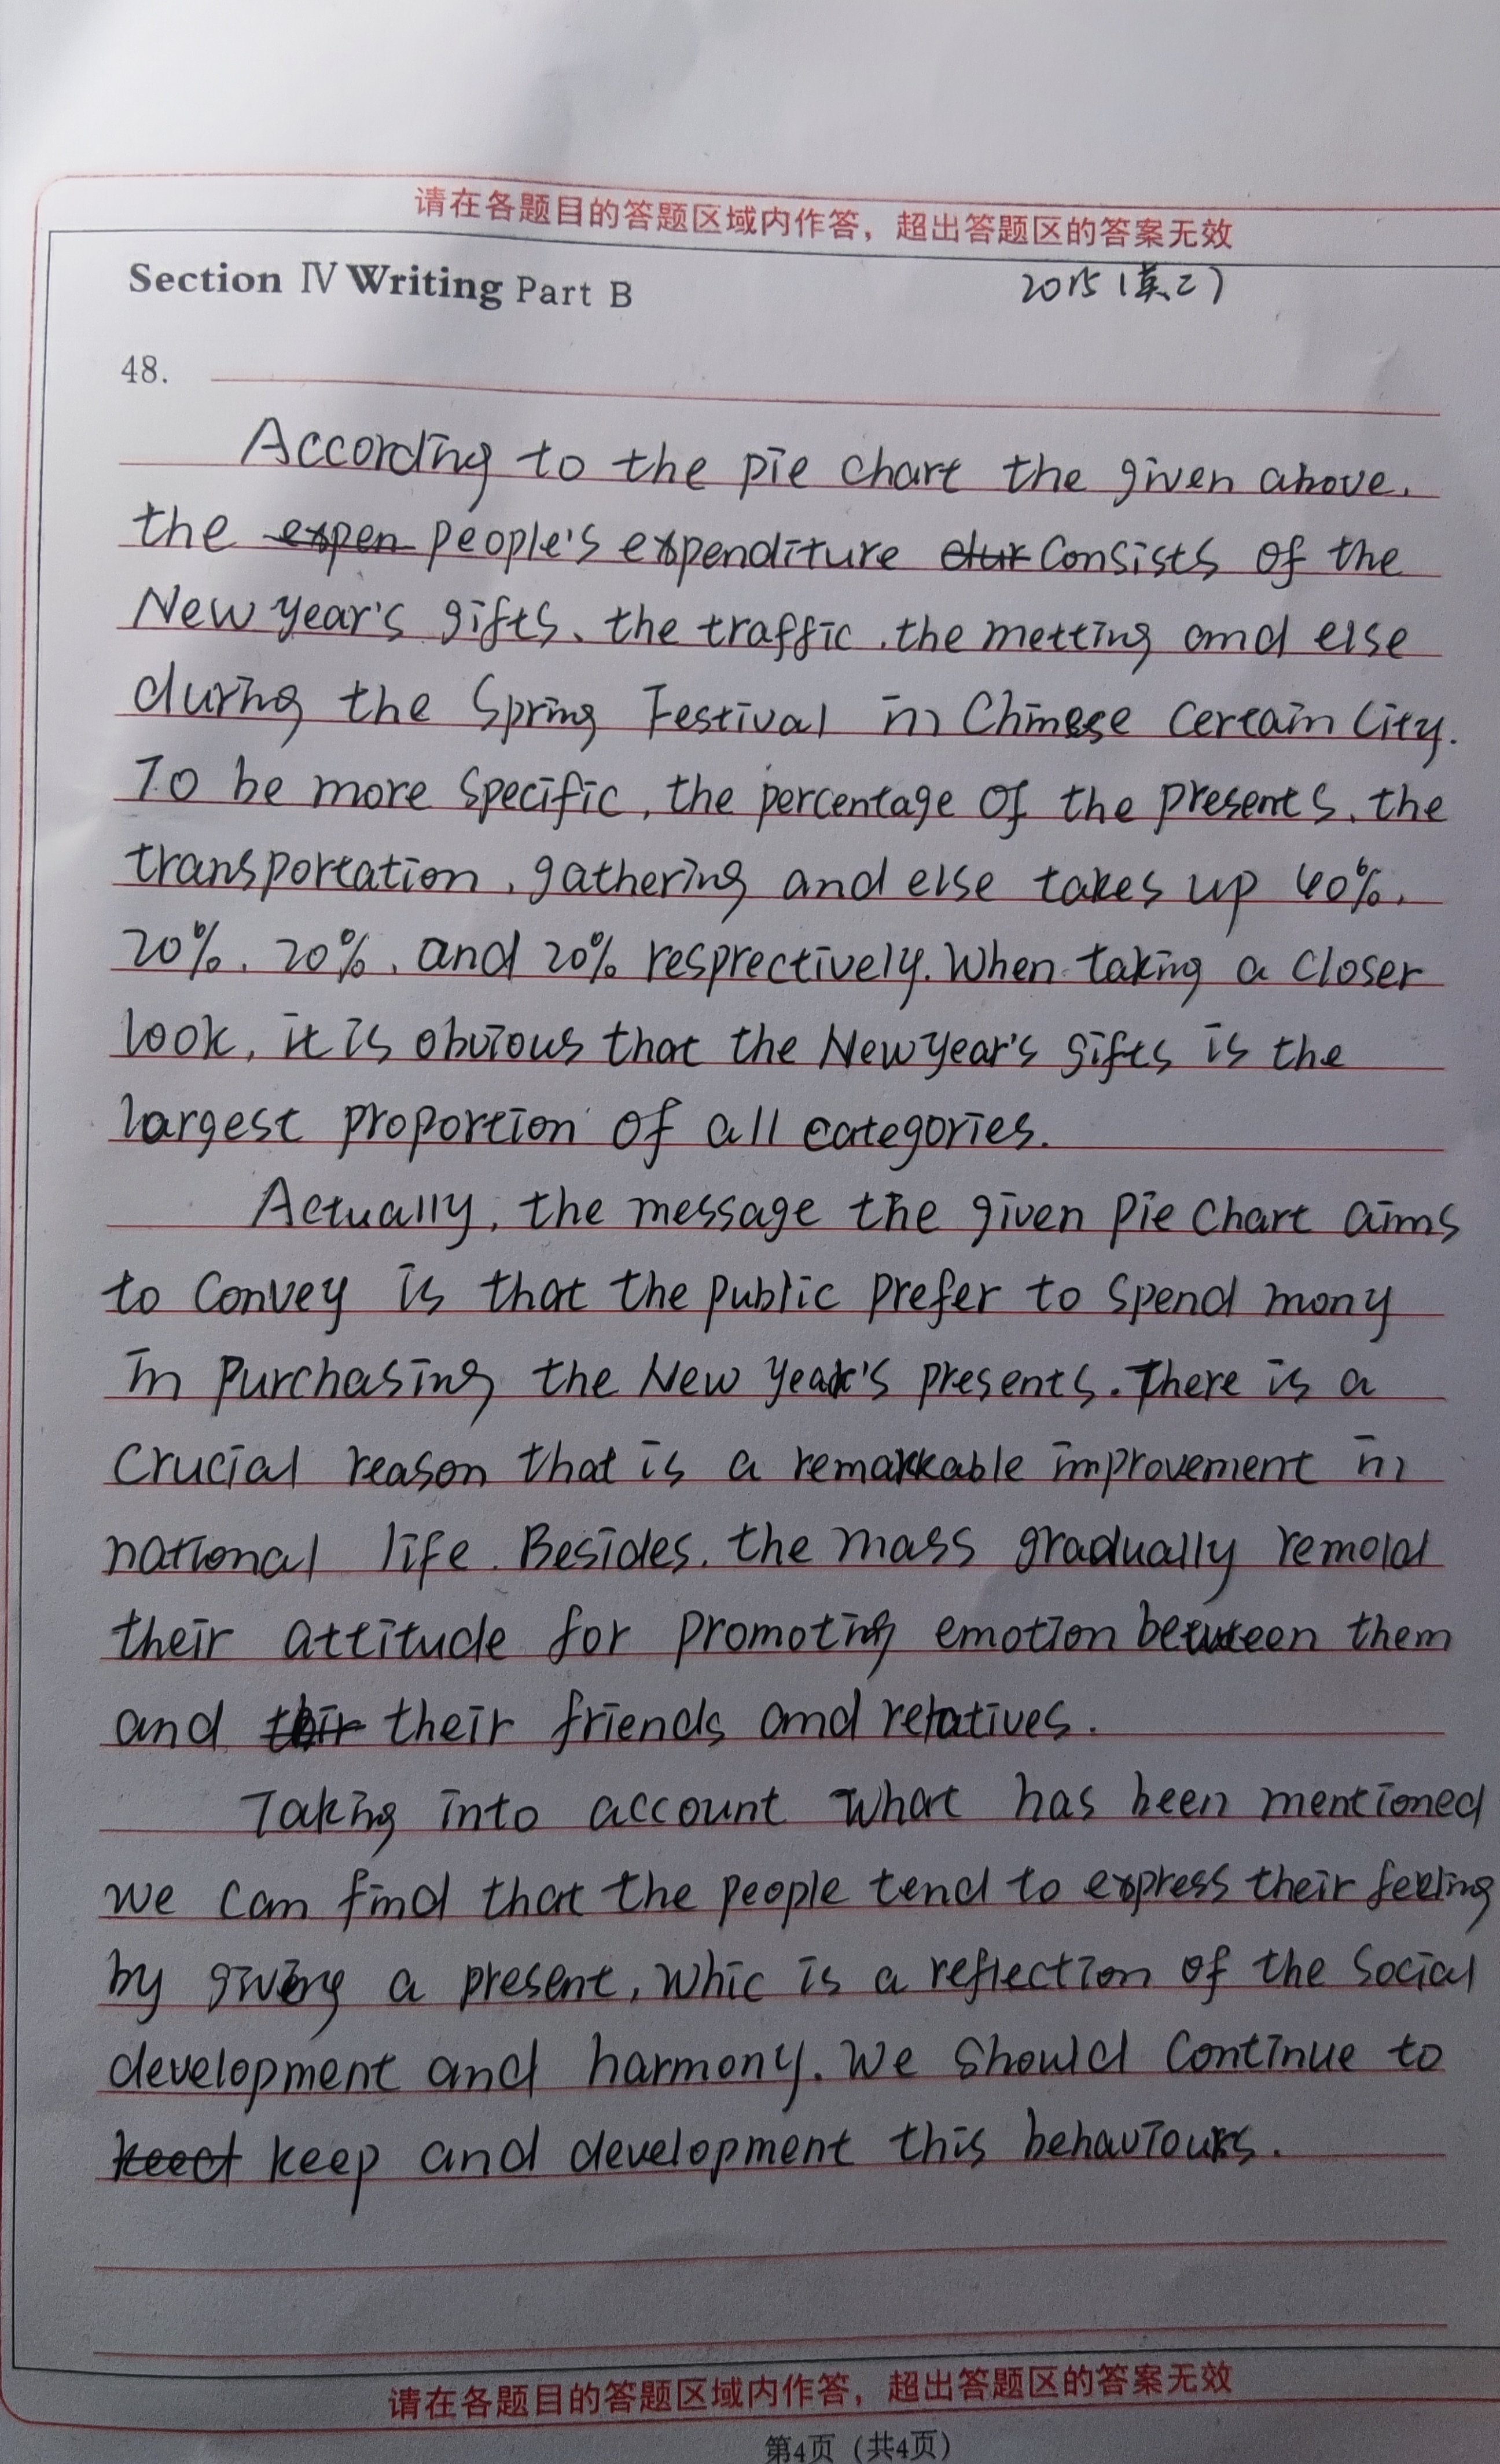 请在各题目的答题区域内作答，超出答题区的答案无效
Section Ⅳ Writing Part B 2015（英二）
48.
According to the pie chart the given above,
the expen people's expenditure consists of the
New year's gifts、the traffic、the metting and else
during the Spring Festival in Chinese certain city.
To be more specific, the percentage of the presents、the
transportation、gathering and else takes up 40%、
20%、20%、and 20% resprectively. When taking a closer
look, it is obvious that the New year's gifts is the
largest proportion of all categories.
Actually, the message the given pie chart aims
to convey is that the public prefer to spend mony
in purchasing the New year's presents. There is a
crucial reason that is a remarkable improvement in
national life. Besides, the mass gradually remold
their attitude for promoting emotion between them
and thir their friends and relatives.
Taking into account what has been mentioned
we can find that the people tend to express their feeling
by giving a present, whic is a reflection of the social
development and harmony. We should continue to
keep and development this behaviours.
请在各题目的答题区域内作答，超出答题区的答案无效
第4页（共4页）